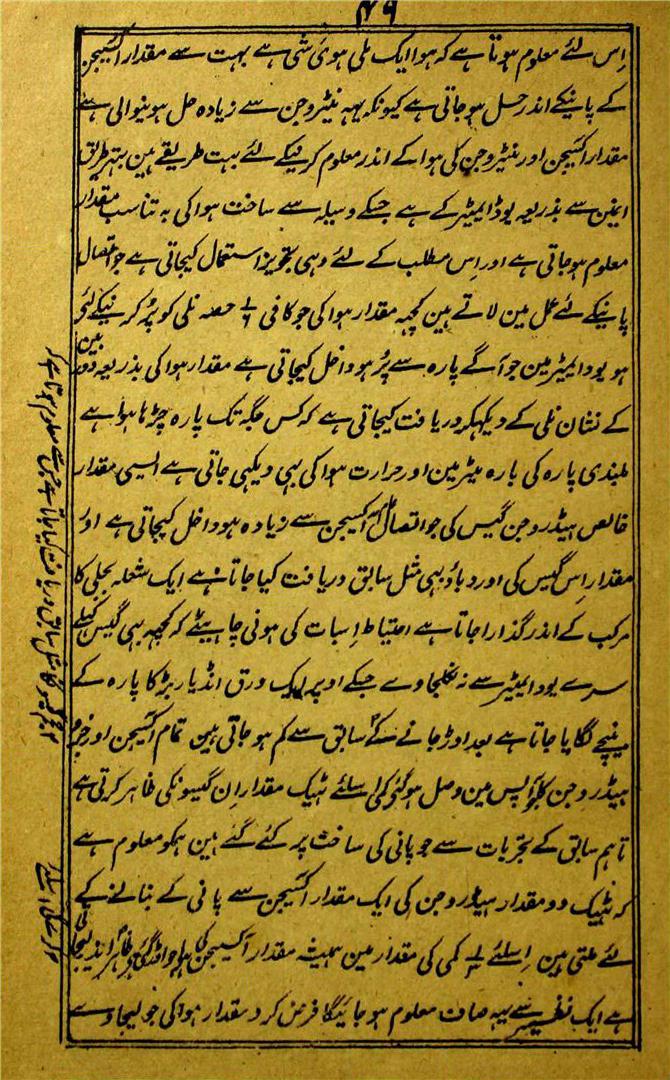 ۴۹
اِس لئے معلوم ہوتا ہے کہ ہوا ایک ملی ہوئی شی ہے بہت سے مقدار آکسیجن
کے پانیکے اندر حل ہو جاتی ہے کیونکہ یہہ نیٹروجن سے زیادہ حل ہونیوالی ہے
مقدار آکسیجن اور نیٹروجن کی ہوا کے اندر معلوم کرنیکے لئے بہت طریقے ہین بہتر طریق
اینن سے بذریعہ یوڈایمیٹر کے ہے جسکے وسیلہ سے ساخت ہوا کی بہ تناسب مقدار
معلوم ہو جاتی ہے اور اِس مطلب کے لئے وہی تجویز استعمال کیجاتی ہے جو اتصال
پانیکے لئے عمل مین لاتے ہین کچہہ مقدار ہوا کی جو کافی ۱/۶ حصہ نلی کو پُر کرنیکے لئی
ہو یودایمیٹر مین جو آگے پارہ سے پُر ہو داخل کیجاتی ہے مقدار ہوا کی بذریعہ دوربین
کے نشان نلی کے دیکہکر دریافت کیجاتی ہے کہ کس جگہ تک پارہ چڑہا ہوا ہے
بلندی پارہ کی بارہ میٹر مین اور حرارت ہوا کی بہی دیکہی جاتی ہے ایسی مقدار
خالص ہیڈروجن گیس کی جو اتصال آکسیجن سے زیادہ ہو داخل کیجاتی ہے اور
مقدار اِس گیس کی اور دباؤ بہی مثل سابق دریافت کیا جاتا ہے ایک شعلہ بجلی کا
مرکب کے اندر گذارا جاتا ہے احتیاط اِسبات کی ہونی چاہیئے کہ کچہہ بہی گیس کہلے
سرے یودایمیٹر سے نہ نکلجاوے جسکے اوپر ایک ورق انڈیا ربڑ کا پارہ کے
نیچے لگایا جاتا ہے بعد اوڑ جانے کے سابق سے کم ہو جاتی ہین تمام آکسیجن اور
ہیڈروجن کا آپس مین وصل ہو گئی کمی اسلئے ٹہیک مقدار اِن گیسونکی ظاہر کرتی ہے
تاہم سابق کے تجربات سے جو پانی کی ساخت پر کئے گئے ہین ہمکو معلوم ہے
کہ ٹہیک دو مقدار ہیڈروجن کی ایک مقدار آکسیجن سے پانی کے بنانے کے
لئے ملتی ہین اِسلئے ۱/۳ کمی کی مقدار مین ہمیشہ مقدار آکسیجن کی
ہے ایک نظیر سے یہہ صاف معلوم ہو جائیگا فرض کرو مقدار ہوا کی جو لیجاوے